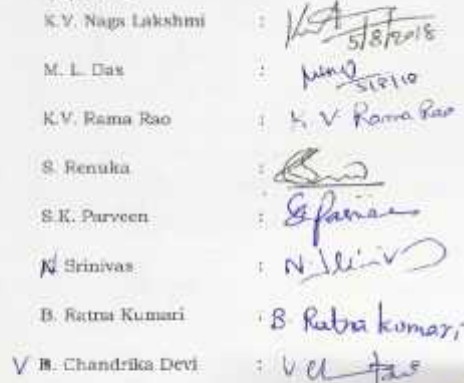 K.V. Naga Lakshmi : 5/8/2018
M. L. Das : 5/8/18
K.V. Rama Rao : K. V. Rama Rao
S. Renuka :
S.K. Parveen : Sk Parveen
N Srinivas : N. Srinivas
B. Ratna Kumari : B. Ratna kumari
V B. Chandrika Devi :